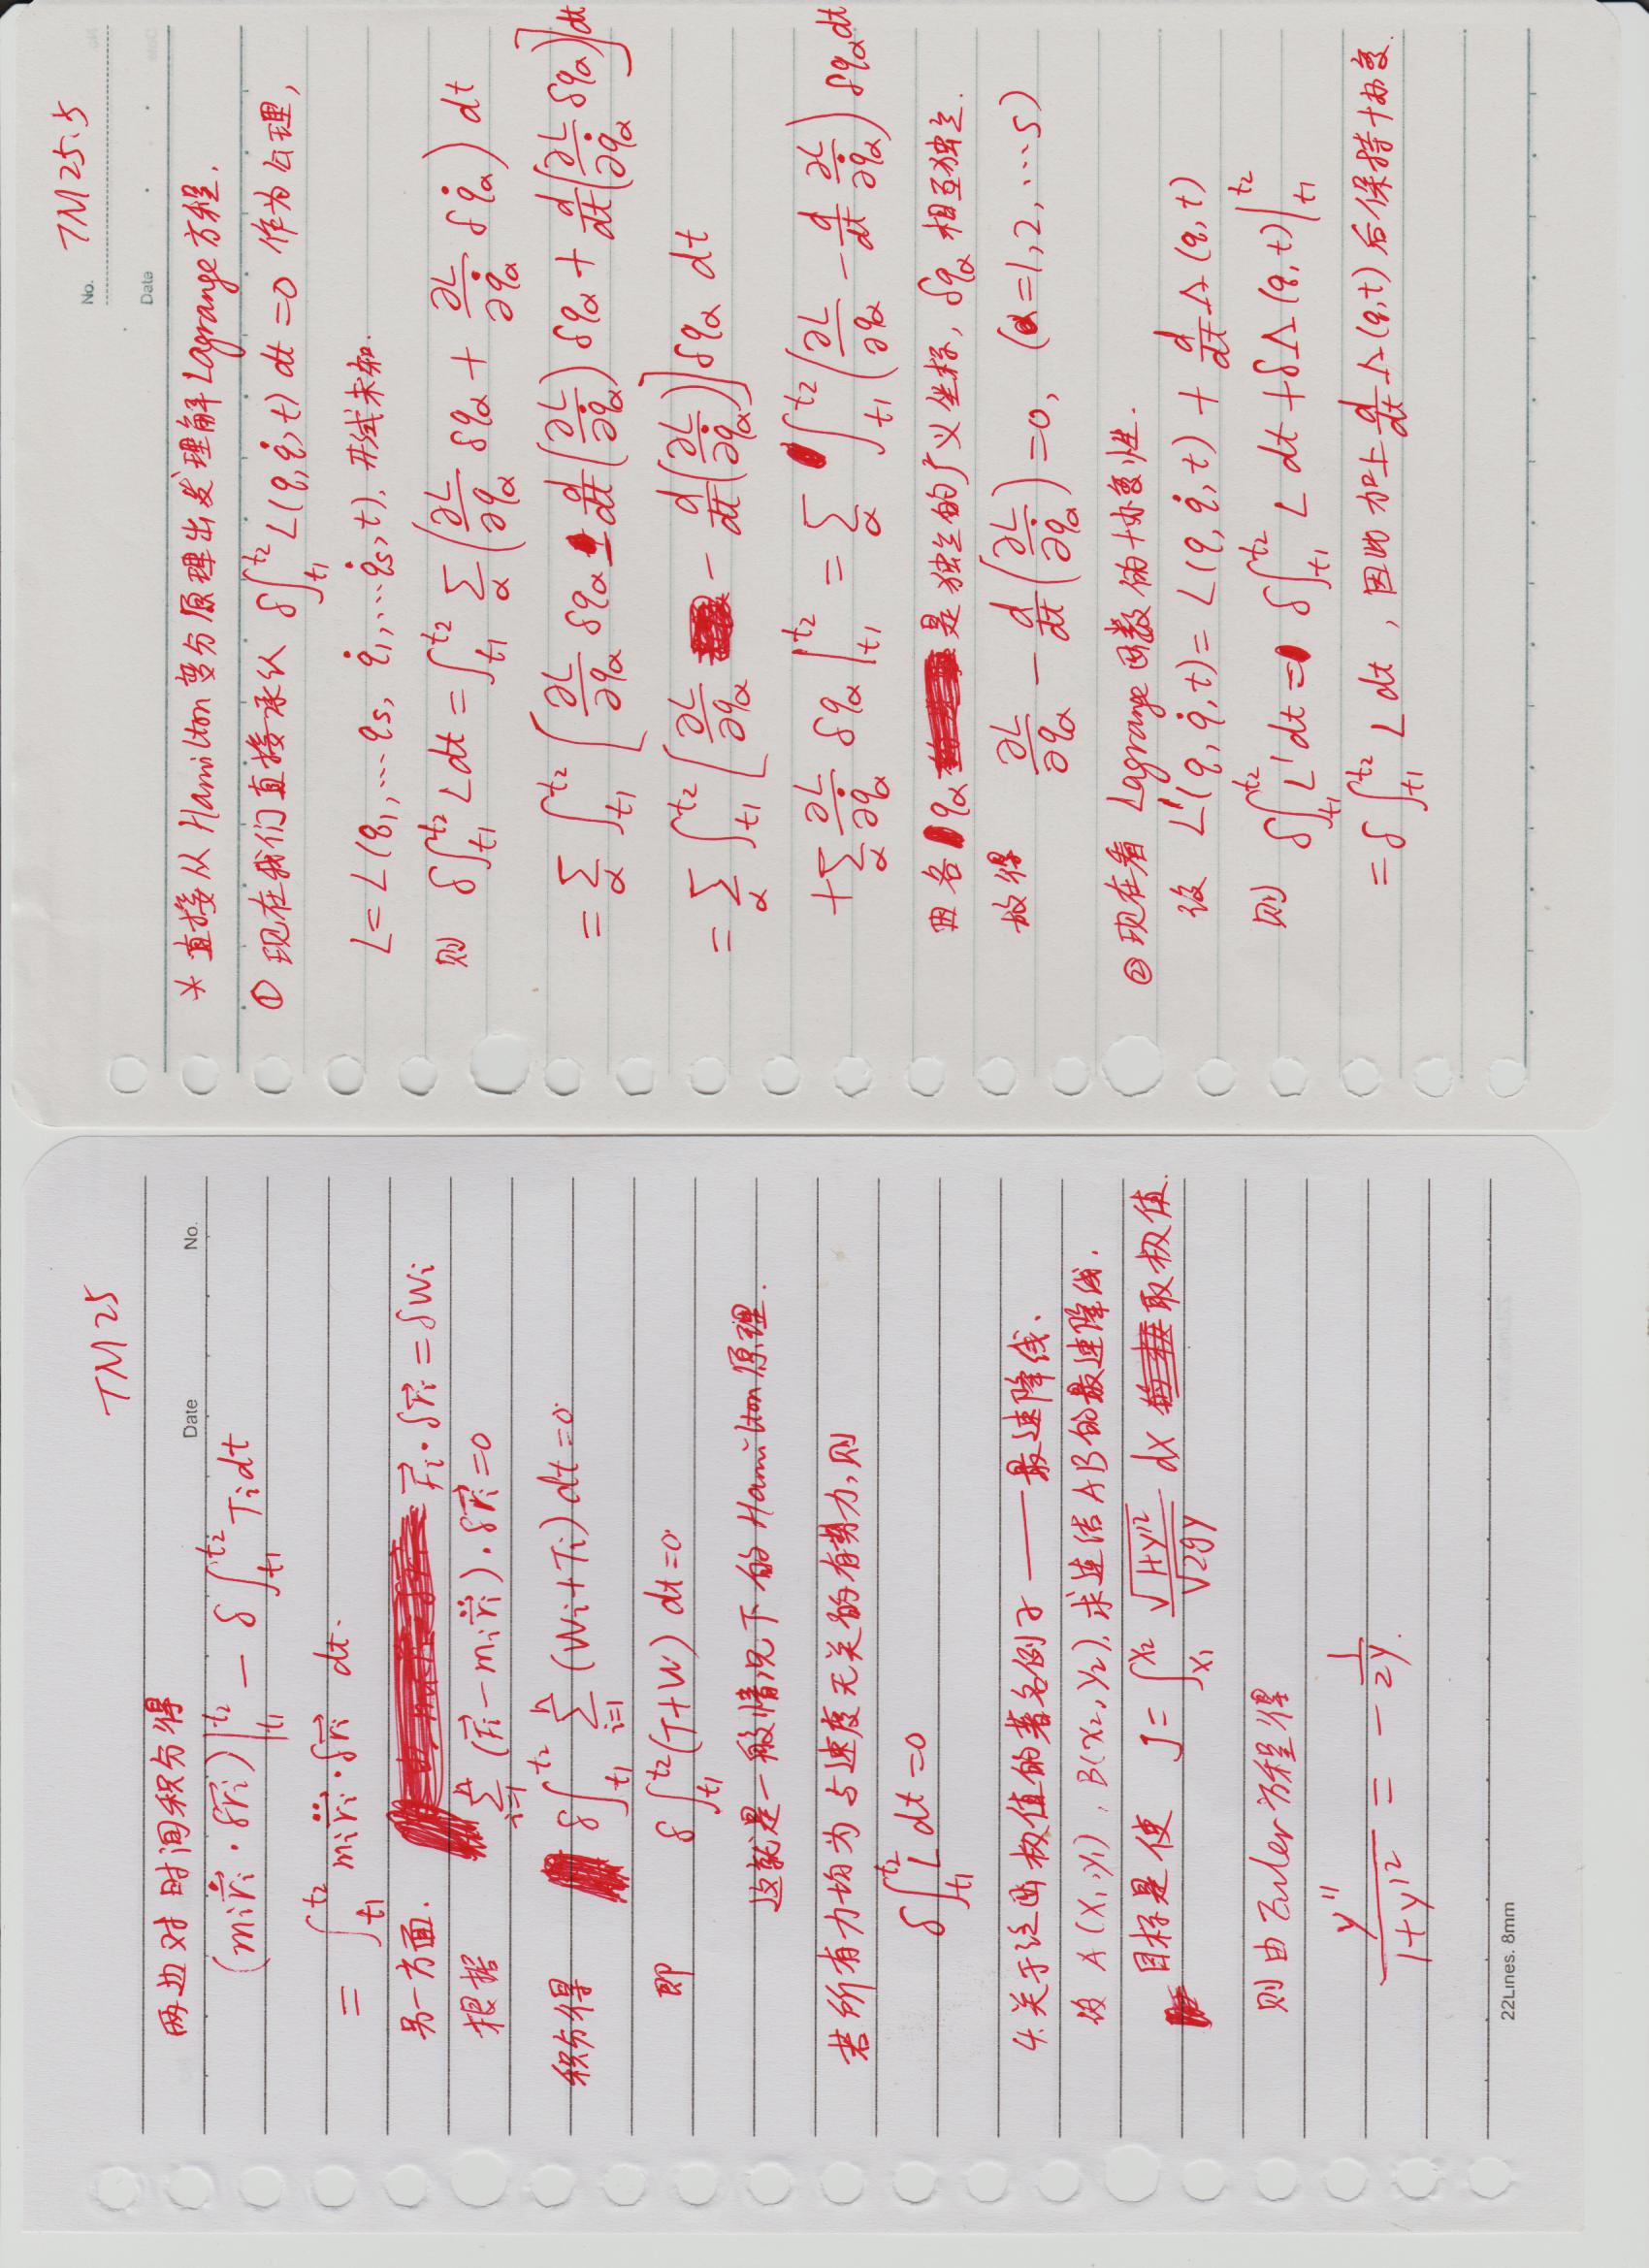 TM 25
两边对时间积分得
Date No.
(mᵢṙ⃗ᵢ · δr⃗ᵢ)|_{t₁}^{t₂} − δ∫_{t₁}^{t₂} Tᵢdt
= ∫_{t₁}^{t₂} mᵢr̈⃗ᵢ · δr⃗ᵢ dt.
另一方面. F⃗ᵢ · δr⃗ᵢ = δWᵢ
根据 ∑_{i=1}^{n} (F⃗ᵢ − mᵢr̈⃗ᵢ) · δr⃗ᵢ = 0
积分得 δ∫_{t₁}^{t₂} ∑_{i=1}^{n} (Wᵢ+Tᵢ) dt = 0.
即 δ∫_{t₁}^{t₂} (T+W) dt = 0.
这就是一般情况下的 Hamilton 原理.
若所有力均为与速度无关的有势力, 则
δ∫_{t₁}^{t₂} L dt = 0
4. 关于泛函极值的著名例子 —— 最速降线.
设 A(x₁, y₁), B(x₂, y₂), 求连结AB的最速降线.
目标是使 J = ∫_{x₁}^{x₂} √(1+y'²)/√(2gy) dx 取极值.
则由 Euler 方程得
y''/(1+y'²) = − 1/(2y).
22Lines. 8mm
No. TM 25.5
Date
* 直接从 Hamilton 变分原理出发理解 Lagrange 方程.
① 现在我们直接承认 δ∫_{t₁}^{t₂} L(q, q̇, t) dt = 0 作为公理,
L = L(q₁, … qₛ, q̇₁, … q̇ₛ, t), 形式未知.
则 δ∫_{t₁}^{t₂} L dt = ∫_{t₁}^{t₂} ∑_α (∂L/∂q_α δq_α + ∂L/∂q̇_α δq̇_α) dt
= ∑_α ∫_{t₁}^{t₂} [∂L/∂q_α δq_α − d/dt(∂L/∂q̇_α) δq_α + d/dt(∂L/∂q̇_α δq_α)] dt
= ∑_α ∫_{t₁}^{t₂} [∂L/∂q_α − d/dt(∂L/∂q̇_α)] δq_α dt
+ ∑_α ∂L/∂q̇_α δq_α |_{t₁}^{t₂} = ∑_α ∫_{t₁}^{t₂} (∂L/∂q_α − d/dt ∂L/∂q̇_α) δq_α dt
因各 q_α 是独立的广义坐标, δq_α 相互独立.
故得 ∂L/∂q_α − d/dt(∂L/∂q̇_α) = 0, (α = 1, 2, … s)
② 现在看 Lagrange 函数的协变性.
设 L'(q, q̇, t) = L(q, q̇, t) + d/dt Λ(q, t)
则 δ∫_{t₁}^{t₂} L' dt = δ∫_{t₁}^{t₂} L dt + δΛ(q, t)|_{t₁}^{t₂}
= δ∫_{t₁}^{t₂} L dt, 因此加上 d/dt Λ(q, t) 后保持协变.